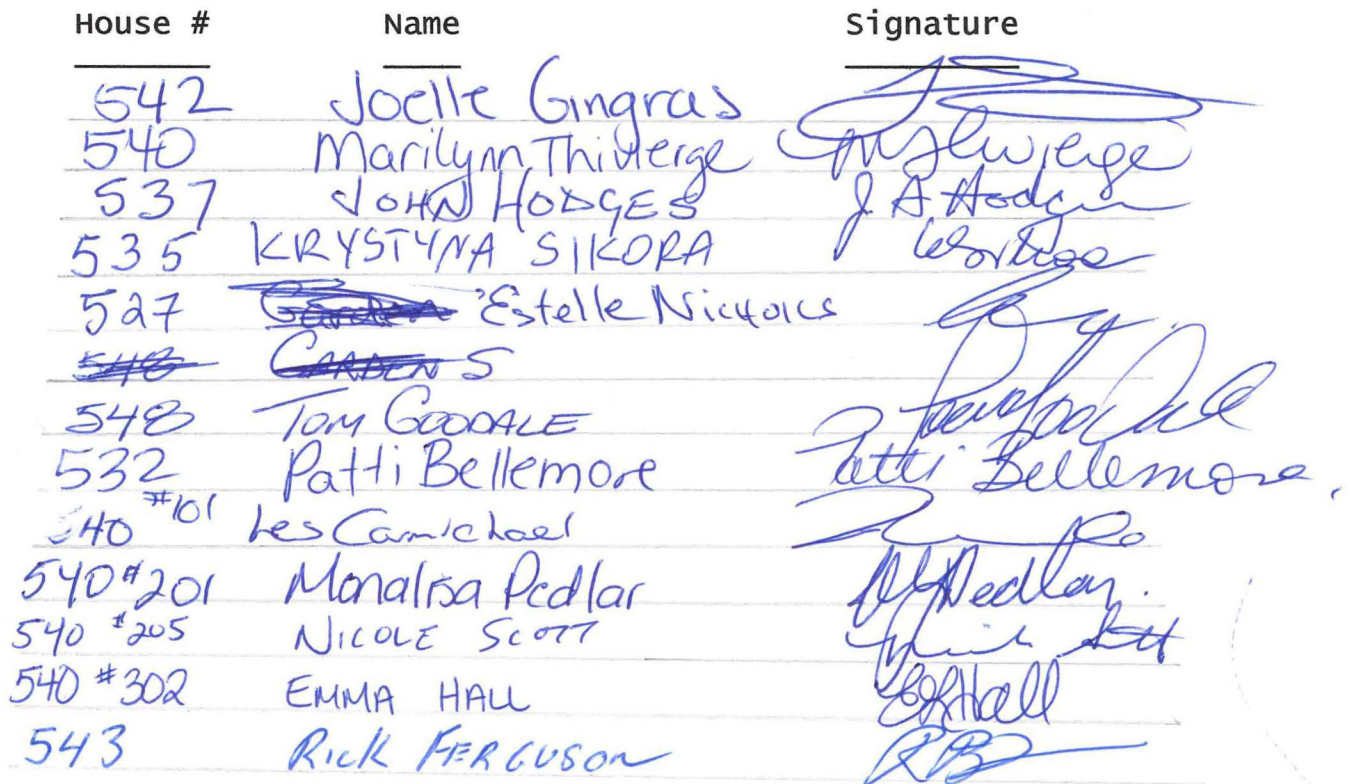 House # Name Signature
542 Joelle Gingras
540 Marilynn Thivierge
537 JOHN HODGES J A Hodges
535 KRYSTYNA SIKORA
527 Estelle Nichols
548
548 TOM GOODALE
532 Patti Bellemore Patti Bellemore.
540 #101 Les Carmichael
540 #201 Monalisa Pedlar
540 #205 NICOLE SCOTT
540 #302 EMMA HALL EHall
543 RICK FERGUSON